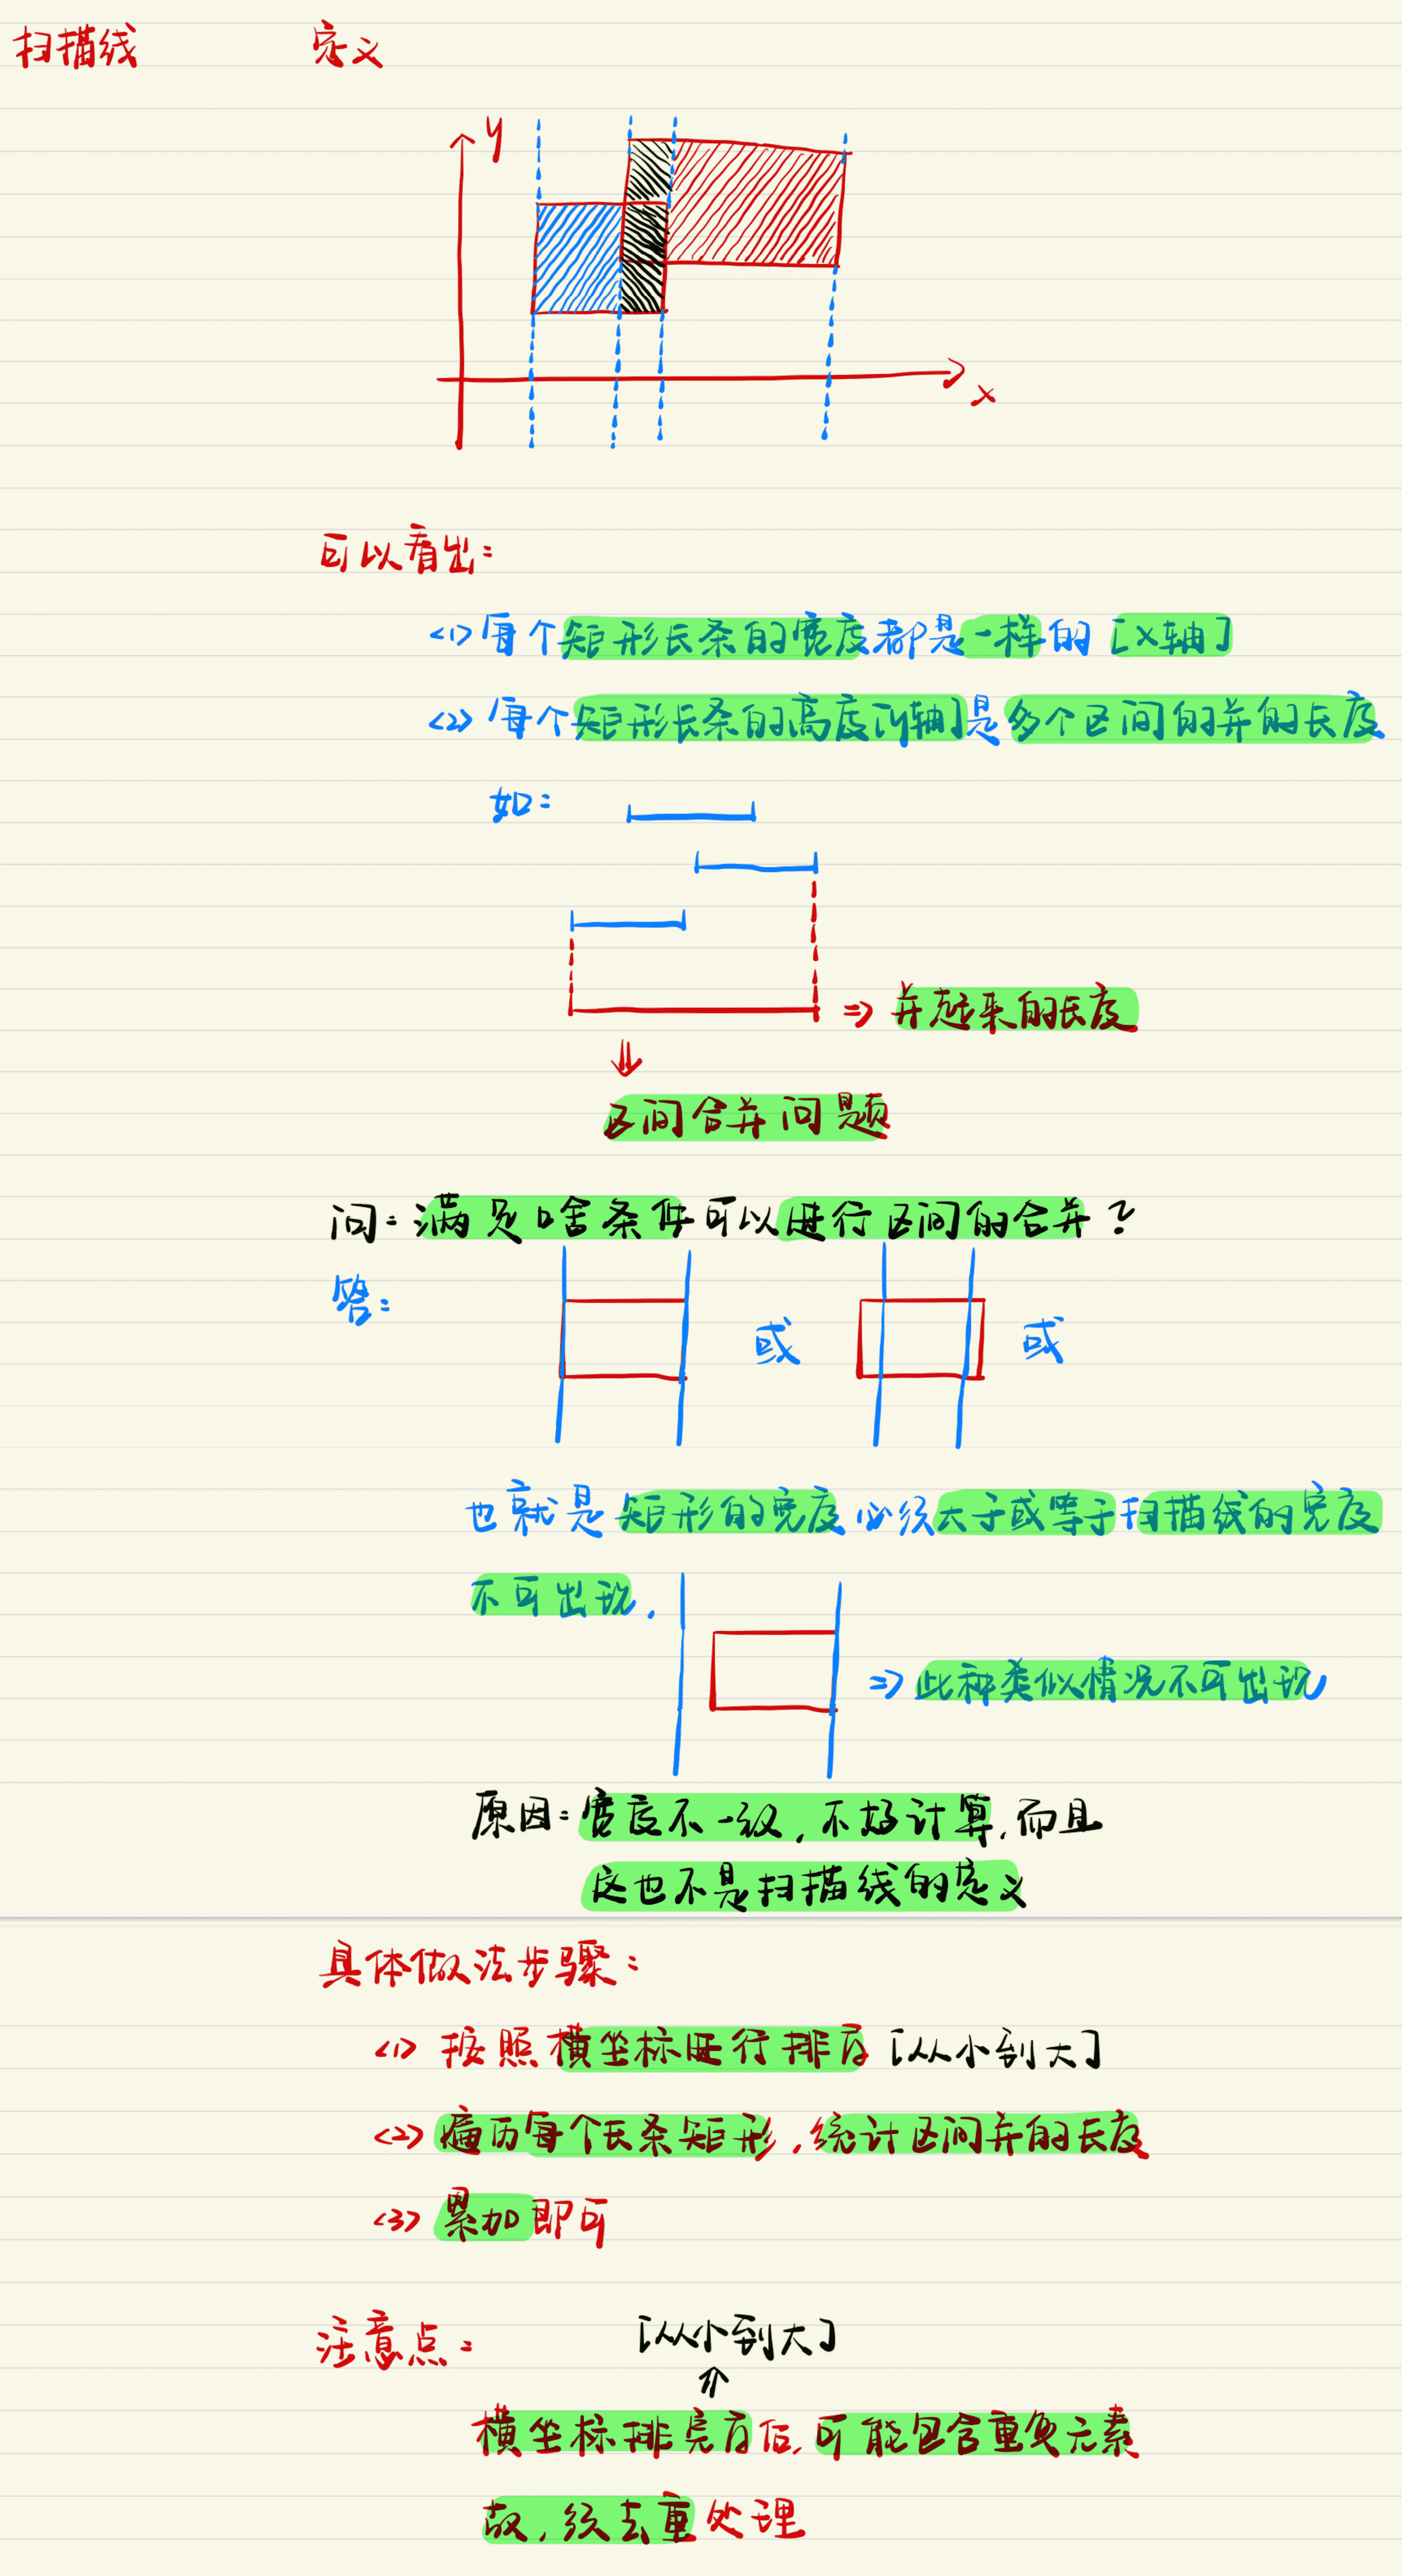 扫描线 定义
y
x
可以看出:
<1> 每个矩形长条的宽度都是一样的 [X轴]
<2> 每个矩形长条的高度[y轴]是多个区间的并的长度
如:
=> 并起来的长度
区间合并问题
问: 满足啥条件可以进行区间的合并?
答:
或 或
也就是矩形的宽度必须大于或等于扫描线的宽度
不可出现,
=> 此种类似情况不可出现
原因: 宽度不一致,不好计算,而且
这也不是扫描线的定义
具体做法步骤:
<1> 按照横坐标进行排序 [从小到大]
<2> 遍历每个长条矩形,统计区间并的长度
<3> 累加即可
注意点: [从小到大]
横坐标排完序后,可能包含重复元素
故,须去重处理